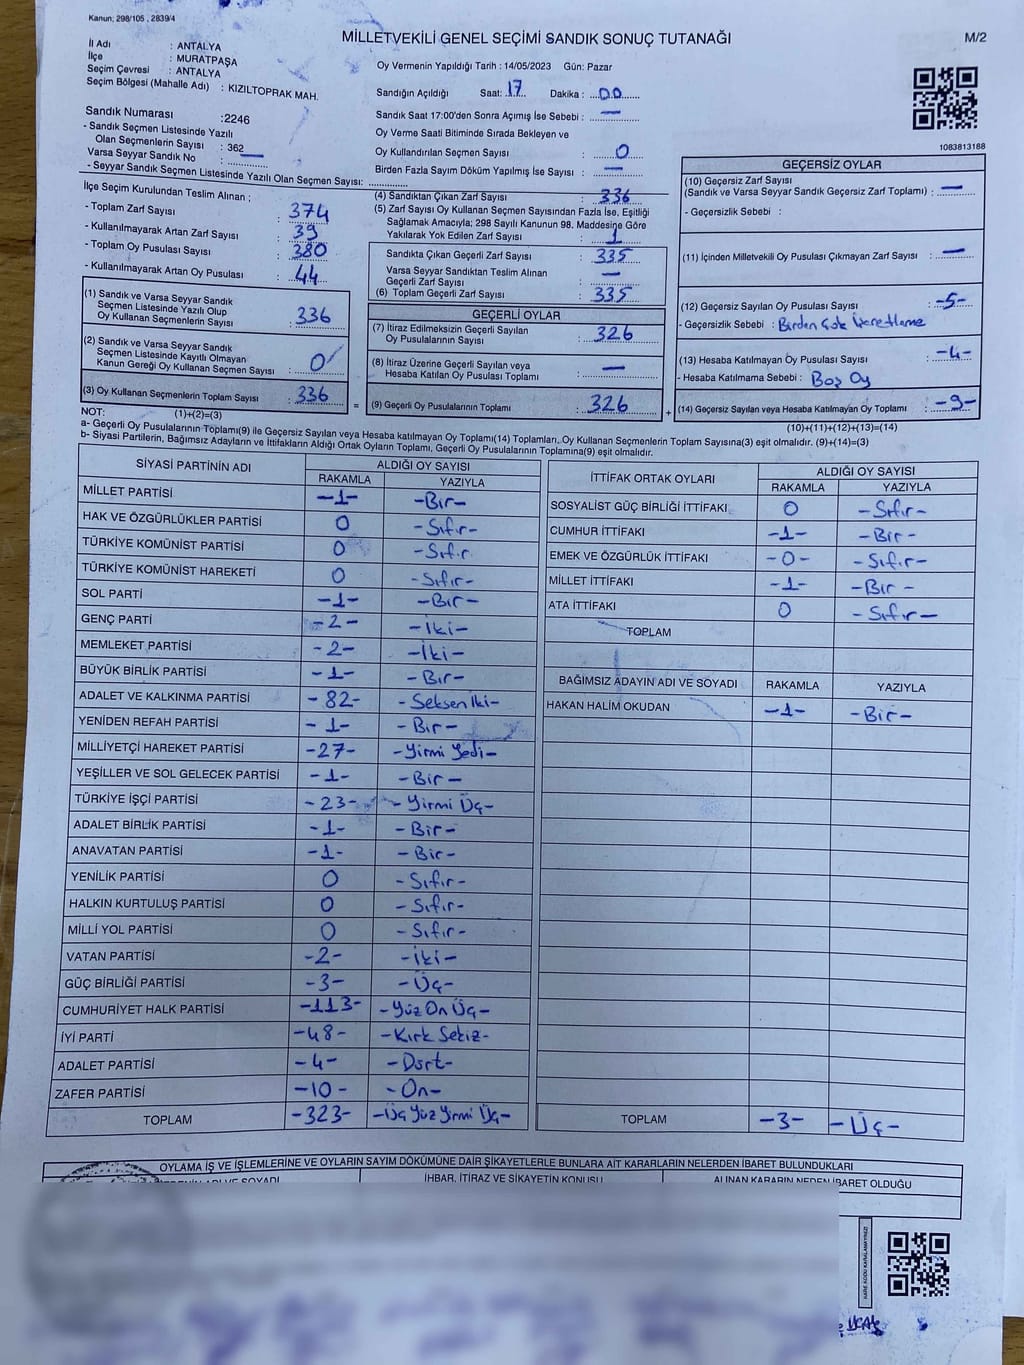 Kanun; 298/105 , 2839/4
MİLLETVEKİLİ GENEL SEÇİMİ SANDIK SONUÇ TUTANAĞI
M/2
İl Adı : ANTALYA
İlçe : MURATPAŞA
Seçim Çevresi : ANTALYA
Seçim Bölgesi (Mahalle Adı) : KIZILTOPRAK MAH.
Sandık Numarası :2246
- Sandık Seçmen Listesinde Yazılı
Olan Seçmenlerin Sayısı : 362
Varsa Seyyar Sandık No : —
- Seyyar Sandık Seçmen Listesinde Yazılı Olan Seçmen Sayısı:
Oy Vermenin Yapıldığı Tarih : 14/05/2023 Gün: Pazar
Sandığın Açıldığı Saat: 17 Dakika : 00
Sandık Saat 17:00'den Sonra Açımış İse Sebebi : —
Oy Verme Saati Bitiminde Sırada Bekleyen ve
Oy Kullandırılan Seçmen Sayısı : 0
Birden Fazla Sayım Döküm Yapılmış İse Sayısı : —
1083813188
İlçe Seçim Kurulundan Teslim Alınan ;
- Toplam Zarf Sayısı : 374
- Kullanılmayarak Artan Zarf Sayısı : 39
- Toplam Oy Pusulası Sayısı : 380
- Kullanılmayarak Artan Oy Pusulası : 44
(1) Sandık ve Varsa Seyyar Sandık
Seçmen Listesinde Yazılı Olup
Oy Kullanan Seçmenlerin Sayısı : 336
(2) Sandık ve Varsa Seyyar Sandık
Seçmen Listesinde Kayıtlı Olmayan
Kanun Gereği Oy Kullanan Seçmen Sayısı : 0
(3) Oy Kullanan Seçmenlerin Toplam Sayısı : 336
(1)+(2)=(3)
(4) Sandıktan Çıkan Zarf Sayısı : 336
(5) Zarf Sayısı Oy Kullanan Seçmen Sayısından Fazla İse, Eşitliği
Sağlamak Amacıyla; 298 Sayılı Kanunun 98. Maddesine Göre
Yakılarak Yok Edilen Zarf Sayısı : 1
Sandıkta Çıkan Geçerli Zarf Sayısı : 335
Varsa Seyyar Sandıktan Teslim Alınan
Geçerli Zarf Sayısı : —
(6) Toplam Geçerli Zarf Sayısı : 335
GEÇERLİ OYLAR
(7) İtiraz Edilmeksizin Geçerli Sayılan
Oy Pusulalarının Sayısı : 326
(8) İtiraz Üzerine Geçerli Sayılan veya
Hesaba Katılan Oy Pusulası Toplamı : —
= (9) Geçerli Oy Pusulalarının Toplamı : 326 +
GEÇERSİZ OYLAR
(10) Geçersiz Zarf Sayısı
(Sandık ve Varsa Seyyar Sandık Geçersiz Zarf Toplamı) : —
- Geçersizlik Sebebi :
(11) İçinden Milletvekili Oy Pusulası Çıkmayan Zarf Sayısı : —
(12) Geçersiz Sayılan Oy Pusulası Sayısı : -5-
- Geçersizlik Sebebi : Birden Çok İşaretleme
(13) Hesaba Katılmayan Oy Pusulası Sayısı : -4-
- Hesaba Katılmama Sebebi : Boş Oy
(14) Geçersiz Sayılan veya Hesaba Katılmayan Oy Toplamı : -9-
(10)+(11)+(12)+(13)=(14)
NOT:
a- Geçerli Oy Pusulalarının Toplamı(9) ile Geçersiz Sayılan veya Hesaba katılmayan Oy Toplamı(14) Toplamları, Oy Kullanan Seçmenlerin Toplam Sayısına(3) eşit olmalıdır. (9)+(14)=(3)
b- Siyasi Partilerin, Bağımsız Adayların ve İttifakların Aldığı Ortak Oyların Toplamı, Geçerli Oy Pusulalarının Toplamına(9) eşit olmalıdır.
SİYASİ PARTİNİN ADI ALDIĞI OY SAYISI
RAKAMLA YAZIYLA
MİLLET PARTİSİ -1- -Bir-
HAK VE ÖZGÜRLÜKLER PARTİSİ 0 -Sıfır-
TÜRKİYE KOMÜNİST PARTİSİ 0 -Sıfır
TÜRKİYE KOMÜNİST HAREKETİ 0 -Sıfır-
SOL PARTİ -1- -Bir-
GENÇ PARTİ -2- -İki-
MEMLEKET PARTİSİ -2- -İki-
BÜYÜK BİRLİK PARTİSİ -1- -Bir-
ADALET VE KALKINMA PARTİSİ -82- -Seksen İki-
YENİDEN REFAH PARTİSİ -1- -Bir-
MİLLİYETÇİ HAREKET PARTİSİ -27- -Yirmi Yedi-
YEŞİLLER VE SOL GELECEK PARTİSİ -1- -Bir-
TÜRKİYE İŞÇİ PARTİSİ -23- -Yirmi Üç-
ADALET BİRLİK PARTİSİ -1- -Bir-
ANAVATAN PARTİSİ -1- -Bir-
YENİLİK PARTİSİ 0 -Sıfır-
HALKIN KURTULUŞ PARTİSİ 0 -Sıfır-
MİLLİ YOL PARTİSİ 0 -Sıfır-
VATAN PARTİSİ -2- -İki-
GÜÇ BİRLİĞİ PARTİSİ -3- -Üç-
CUMHURİYET HALK PARTİSİ -113- -Yüz On Üç-
İYİ PARTİ -48- -Kırk Sekiz-
ADALET PARTİSİ -4- -Dört-
ZAFER PARTİSİ -10- -On-
TOPLAM -323- -Üç Yüz Yirmi Üç-
İTTİFAK ORTAK OYLARI ALDIĞI OY SAYISI
RAKAMLA YAZIYLA
SOSYALİST GÜÇ BİRLİĞİ İTTİFAKI 0 -Sıfır-
CUMHUR İTTİFAKI -1- -Bir-
EMEK VE ÖZGÜRLÜK İTTİFAKI -0- -Sıfır-
MİLLET İTTİFAKI -1- -Bir-
ATA İTTİFAKI 0 -Sıfır-
TOPLAM
BAĞIMSIZ ADAYIN ADI VE SOYADI RAKAMLA YAZIYLA
HAKAN HALİM OKUDAN -1- -Bir-
TOPLAM -3- -Üç-
OYLAMA İŞ VE İŞLEMLERİNE VE OYLARIN SAYIM DÖKÜMÜNE DAİR ŞİKAYETLERLE BUNLARA AİT KARARLARIN NELERDEN İBARET BULUNDUKLARI
VE SOYADI İHBAR, İTİRAZ VE ŞİKAYETİN KONUSU ALINAN KARARIN NEDEN İBARET OLDUĞU
KARE KODU KARALAMAYINIZ!